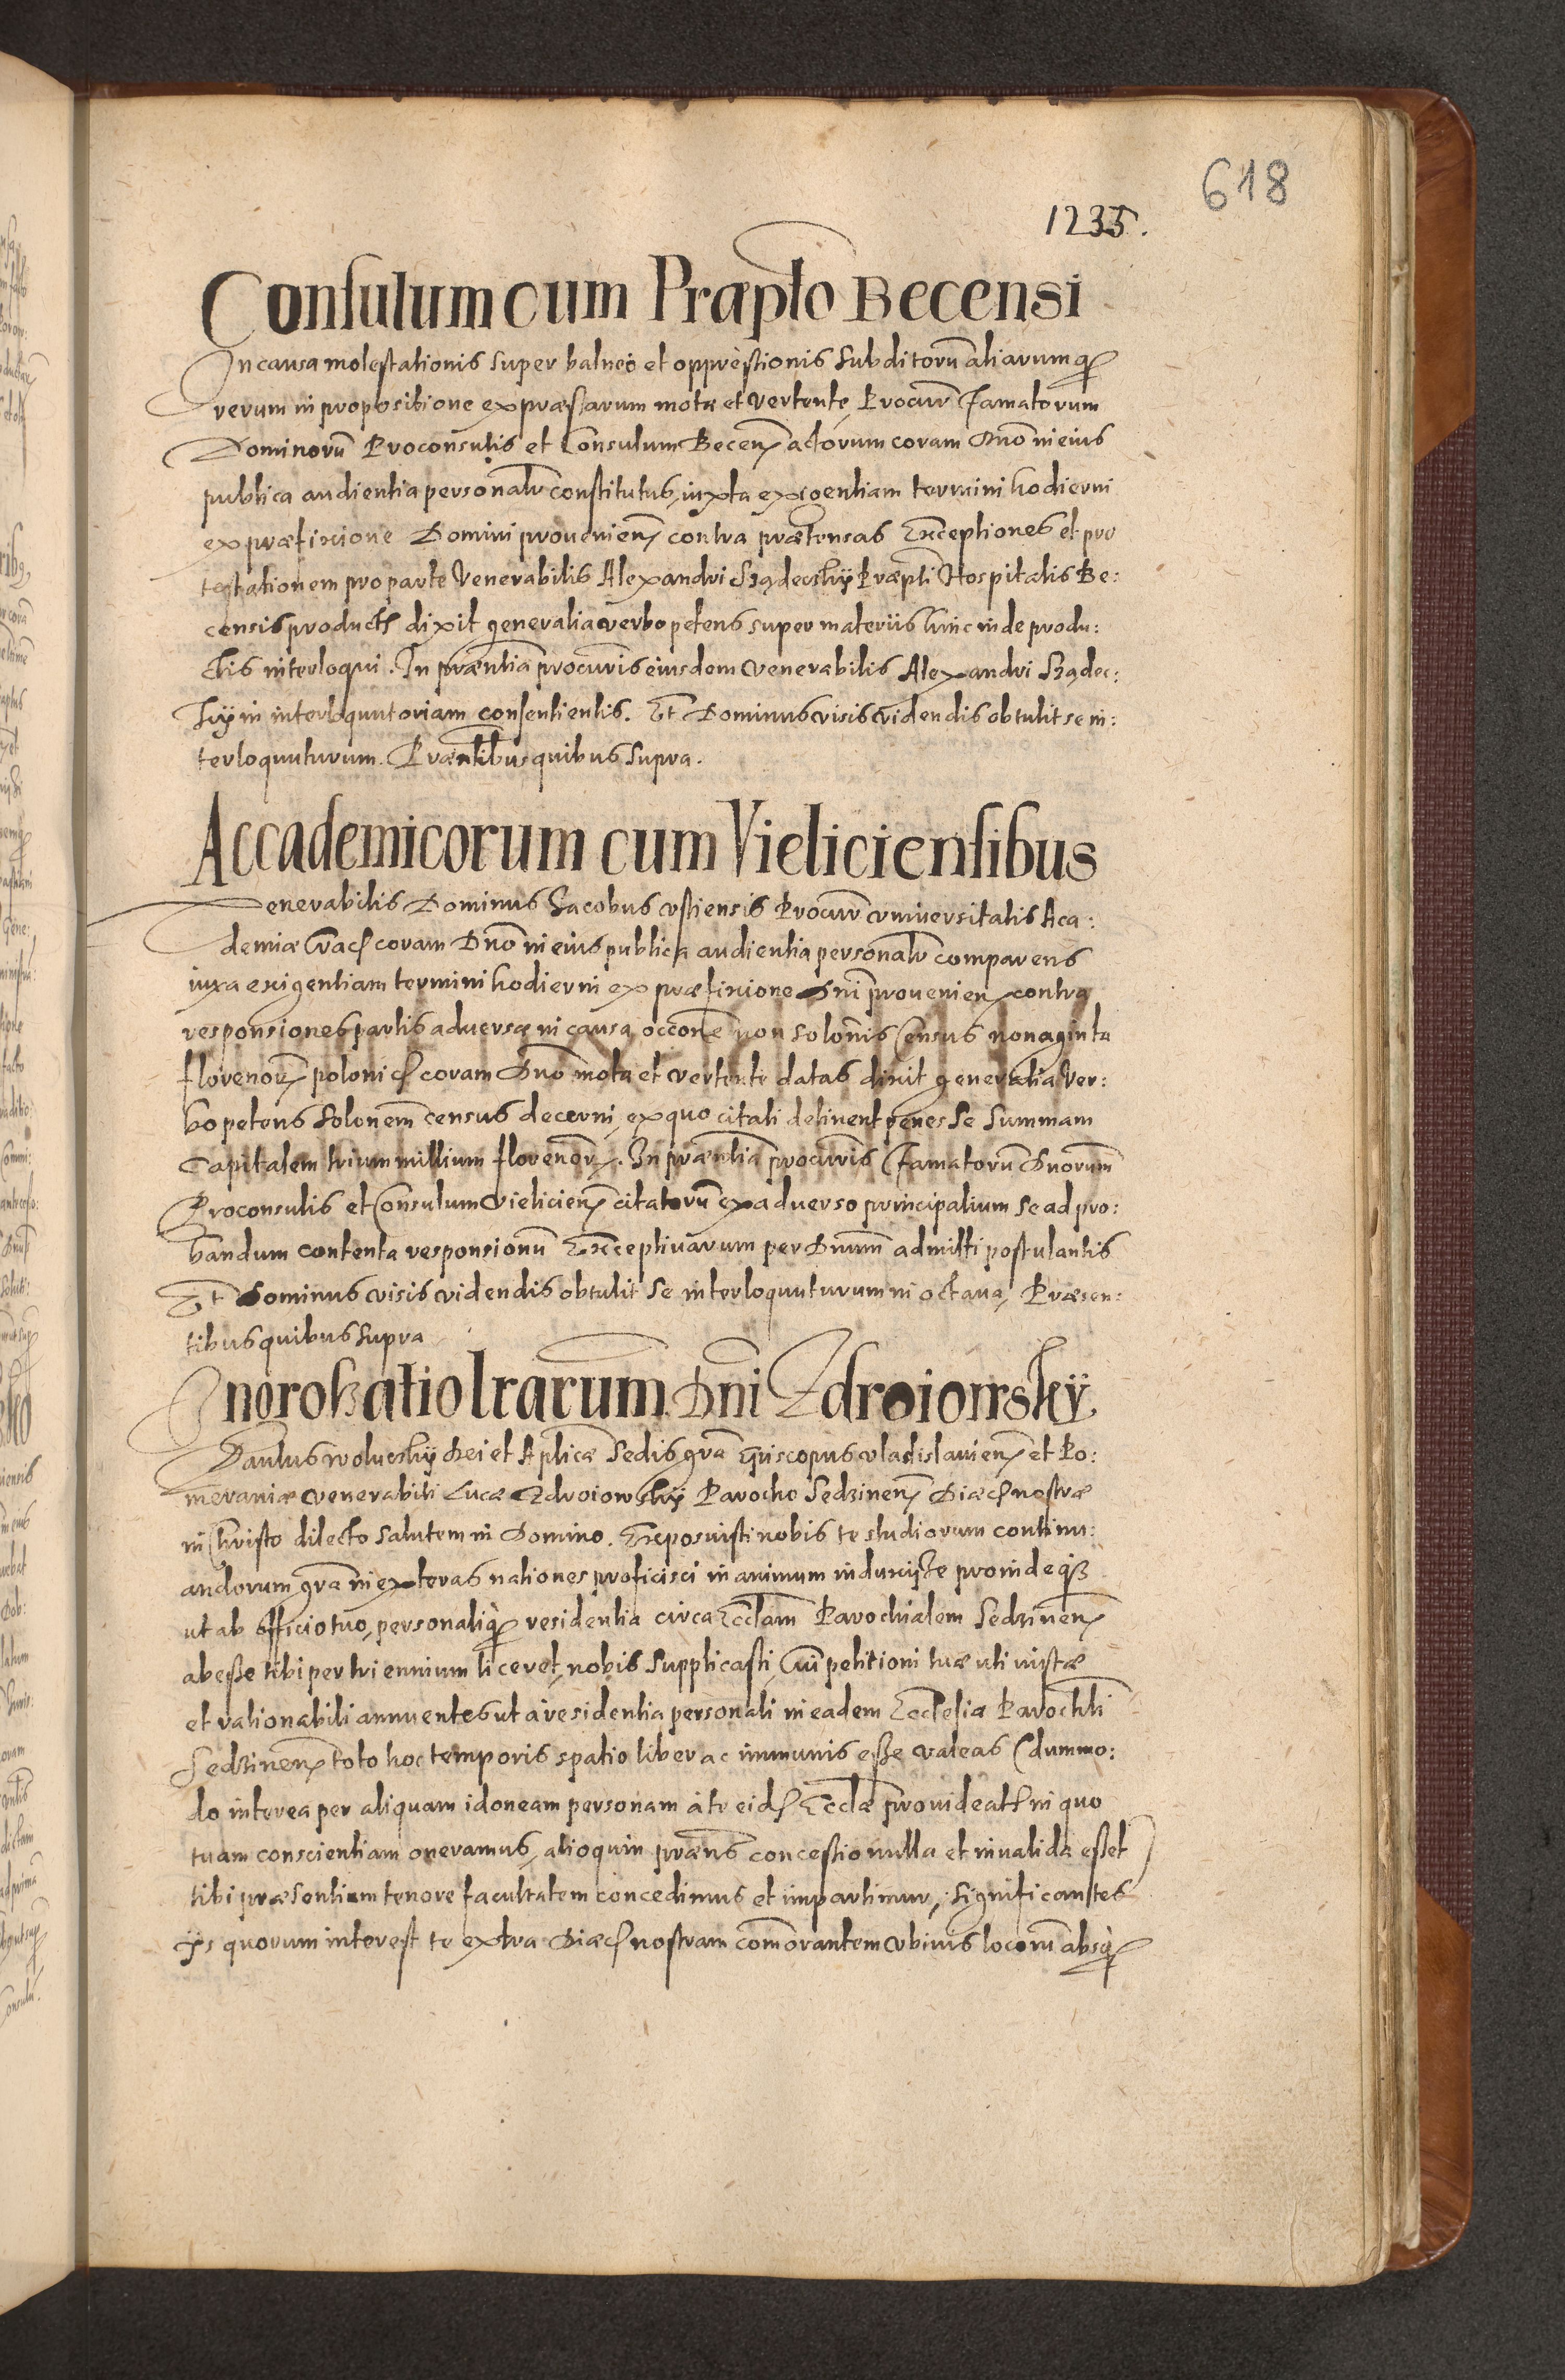 618
1235.
Consulum cum Præpto Becensi
In causa molestationis super balneo et oppressionis subditorũ aliarumq́
rerum in propositione expræssarum mota et vertente, Procur Famatorum
Dominorũ Proconsulis et Consulum Becen̄ actorum coram Dnõ in eius
publica audientia personalr̃ constitutus, iuxta exigentiam termini hodierni
ex præfixione Domini prouenien̄ contra prætensas Exceptiones et pro
testationem pro parte Venerabilis Alexandri Sządecsky Præpti Hospitalis Be:
censis product̃ dixit generalia verbo petens super materiis hinc inde produ:
ctis interloqui. In præntia procuris eiusdem venerabilis Alexandri Sządec:
sky in interloquutoriam consentientis. Et Dominus visis videndis obtulit se in:
terloquuturum. Præntibus quibus supra.
Accademicorum cum Vieliciensibus
Venerabilis Dominus Jacobus vstiensis Procur vniuersitatis Aca:
demiæ Crac̃ coram Dnõ in eius publica audientia personalr̃ comparens
iuxa exigentiam termini hodierni ex præfixione Dni prouenien̄ contra
responsiones partis aduersæ in causa occõne non solonis Census nonaginta
florenor̃ polonic̃ coram Dnõ mota et vertente datas dixit generalia ver:
bo petens solonem census decerni, ex quo citati detinent penes se summam
Capitalem trium millium florenor̃. In præntia procuris Famatorũ Dnorum
Proconsulis et Consulum Vielicien̄ citatorũ ex aduerso principalium se ad pro:
bandum contenta responsionũ Exceptiuarum per Dnum admitti postulantis
Et Dominus visis videndis obtulit se interloquuturum in octaua, Præsen:
tibus quibus supra
Ingrossatio lrarum Dni Zdroiowsky
Paulus Woluczky Dei et Aplicæ Sedis gra Episcopus vladislauien̄ et Po:
meraniæ venerabili Lucæ Zdroiowsky Parocho Sedzinen̄ Diæc̃ nostræ
in Christo dilecto salutem in Domino. Exposuisti nobis te studiorum continu:
andorum gra in exteras nationes proficisci in animum induxisse proindeq́
ut ab officio tuo, personaliq́ residentia circa Ecclam Parochialem Sedzinen̄
abesse tibi per triennium liceret, nobis supplicasti, Cui petitioni tuæ uti iustæ
et rationabili annuentes ut à residentia personali in eadem Ecclesia Parochli
Sedzinen̄ toto hoc temporis spatio liber ac immunis esse valeas (dummo:
do interea per aliquam idoneam personam à te eid̃ Ecclæ prouideat̃ in quo
tuam conscientiam oneramus, alioquin præns concessio nulla et inualida esset)
tibi præsentium tenore facultatem concedimus et impartimur, significantes
ijs quorum interest te extra Diæc̃ nostram com̃orantem vbiuis locorũ absq́